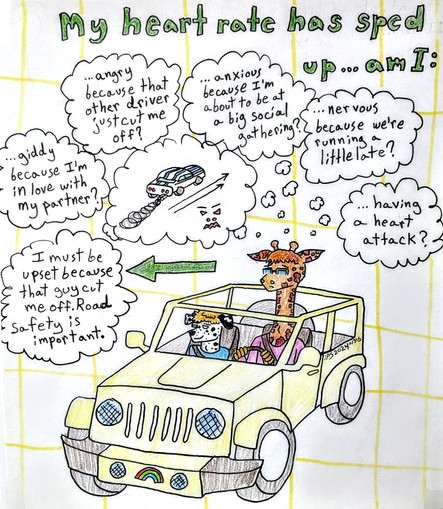 My heart rate has sped
up... am I:
...angry
because that
other driver
just cut me
off?
...anxious
because I'm
about to be at
a big social
gathering?
...nervous
because we're
running a
little late?
...giddy
because I'm
in love with
my partner?
...having
a heart
attack?
I must be
upset because
that guy cut
me off. Road
safety is
important.